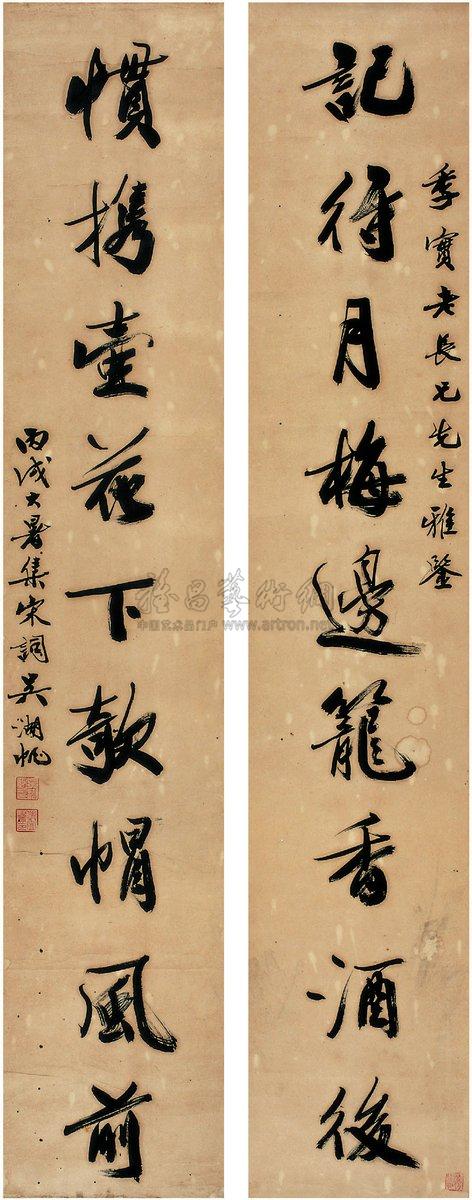 季寶老長兄先生雅鑒
記待月梅邊籠香酒後
慣攜壺花下欹帽風前
丙戌大暑集宋詞吳湖帆
雅昌藝術網
中国艺术品门户 www.artron.net